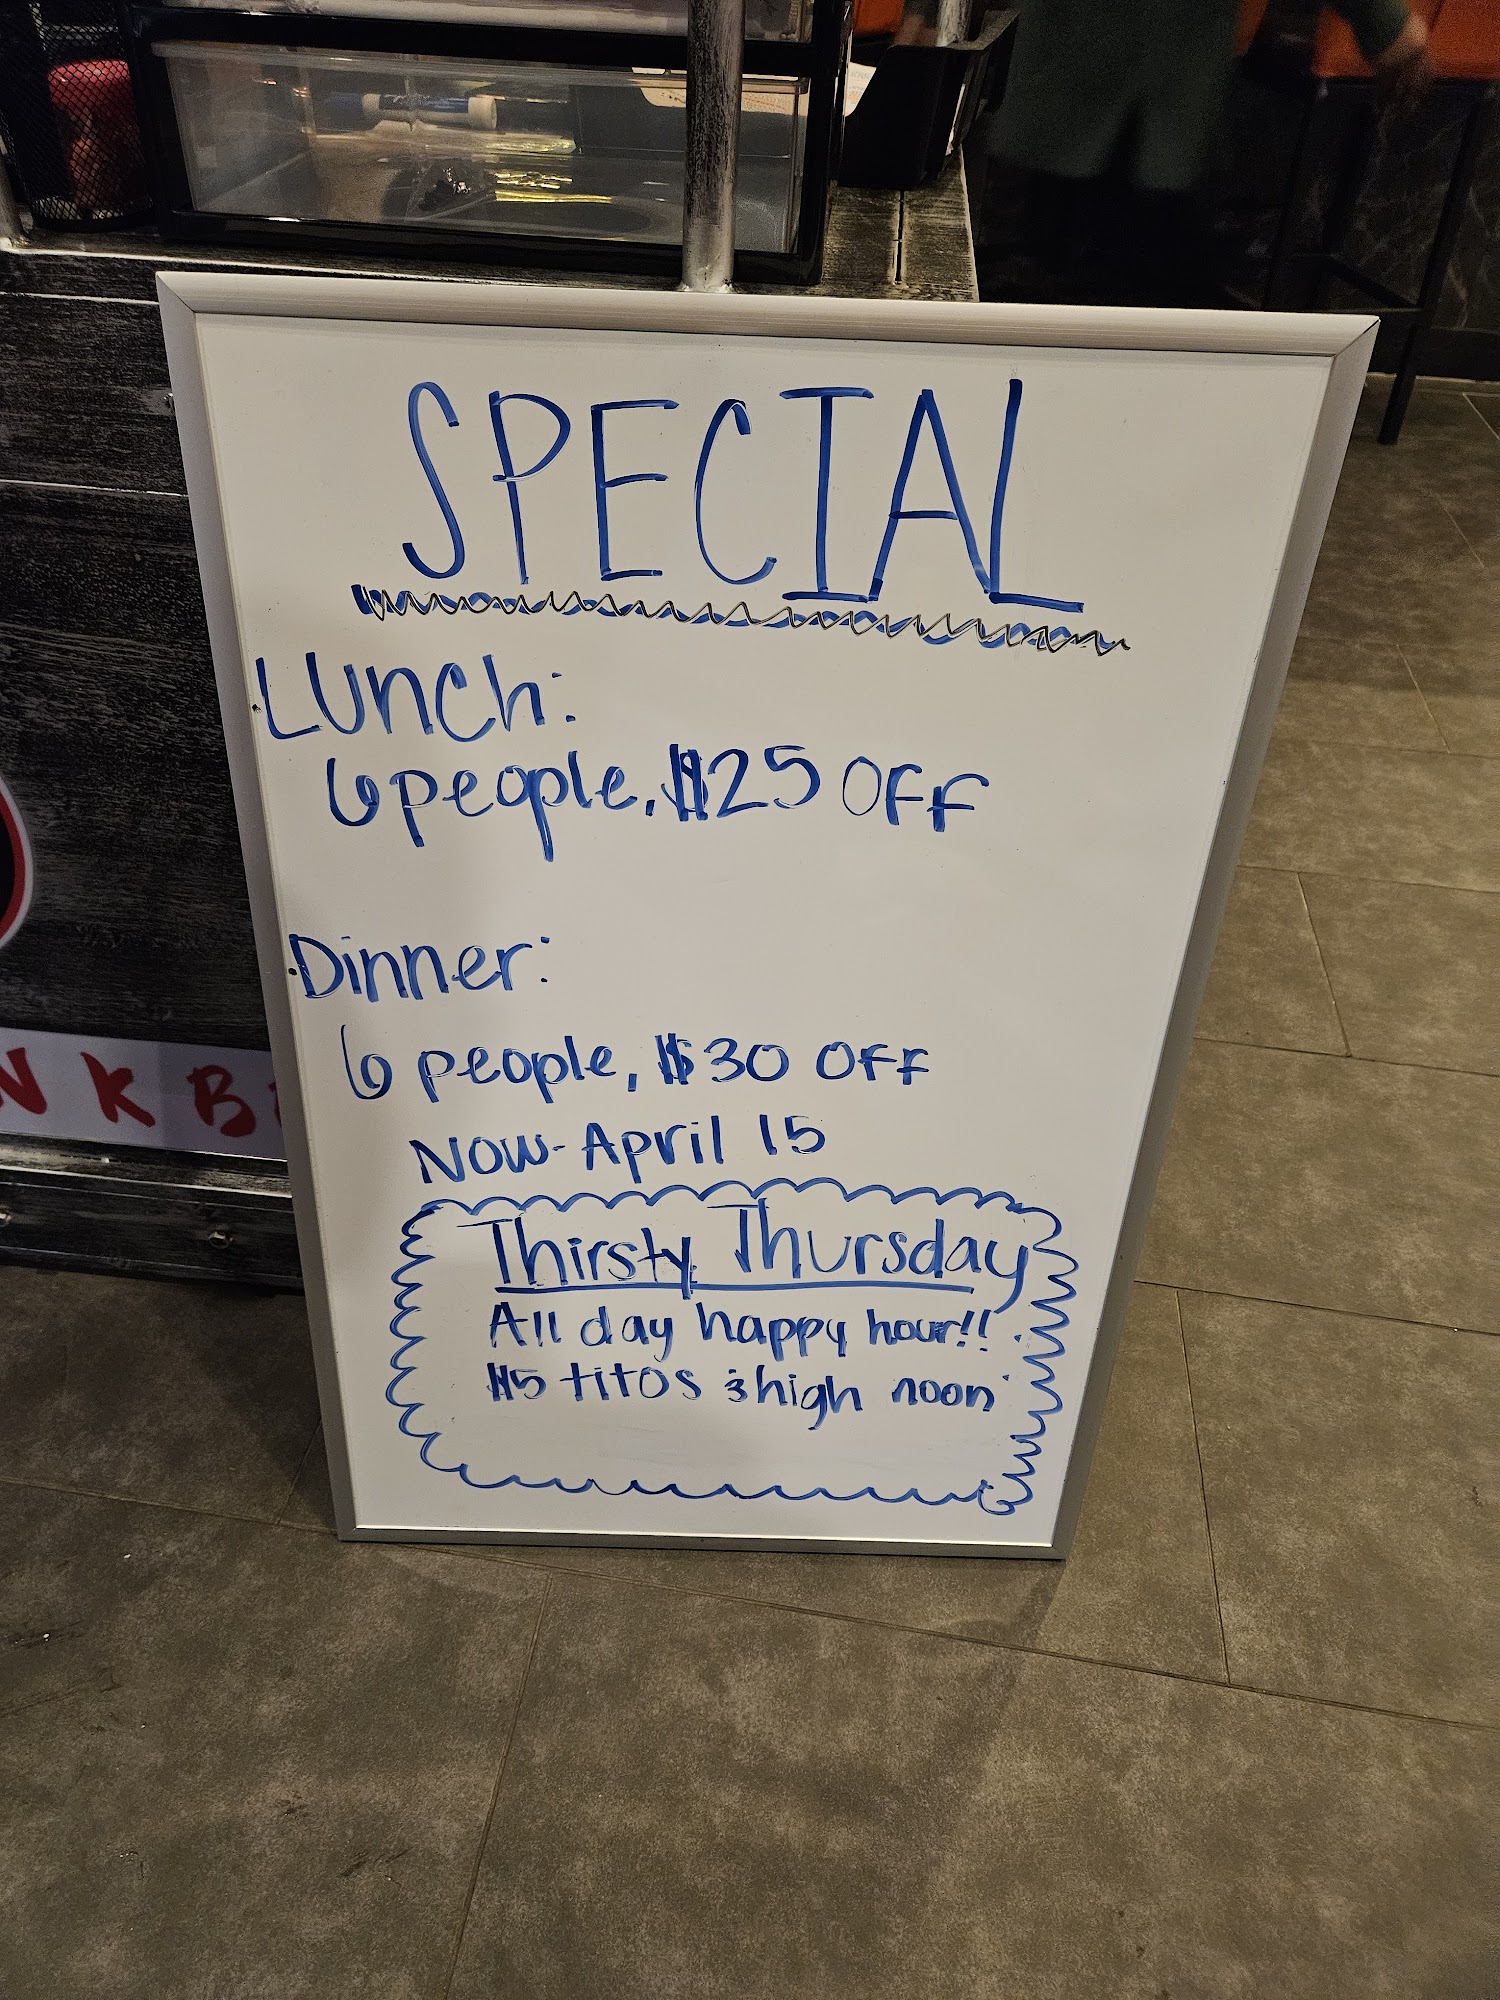 SPECIAL
Lunch:
6 people, $25 OFF
Dinner:
6 people, $30 OFF
NOW - April 15
Thirsty Thursday
All day happy hour!!
$5 titos & high noon
NKB